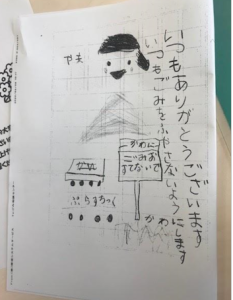 いつもありがとうございます
いつもごみをふやさないようにします
かわに
ごみお
すてないで
ぷらすちっく
かわ